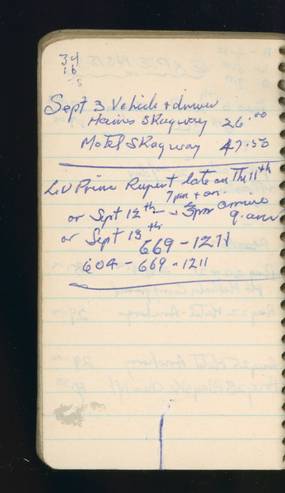 34
16
Sept 3 Vehicle + driver
Haines Skagway 26.00
Motel Skagway 47.50
LV Prince Rupert late on Th 11th
7pm + on
or Sept 12th - 3pm arrive
9. am
or Sept 13th
669-1211
604-669-1211